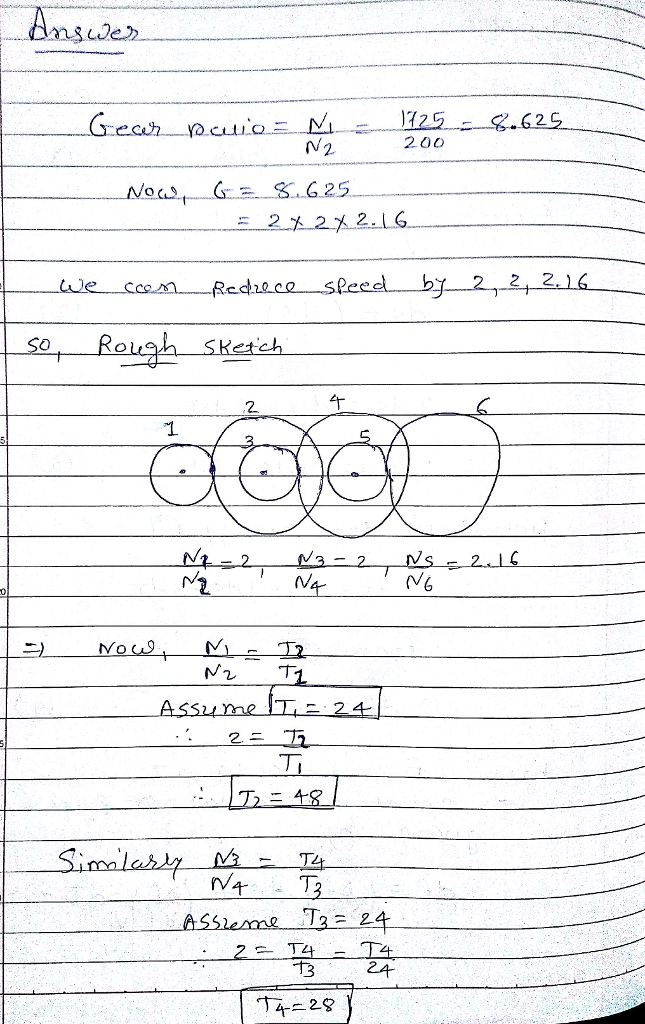 Answer
Gear ratio = N1/N2 = 1725/200 = 8.625
Now, G = 8.625
= 2 x 2 x 2.16
We can Reduce speed by 2, 2, 2.16
so, Rough sketch
2 4 6
1 3 5
N1/N2 = 2, N3/N4 = 2, N5/N6 = 2.16
=) Now, N1/N2 = T2/T1
Assume T1 = 24
∴ 2 = T2/T1
∴ T2 = 48
Similarly N3/N4 = T4/T3
Assume T3 = 24
∴ 2 = T4/T3 = T4/24
T4 = 28